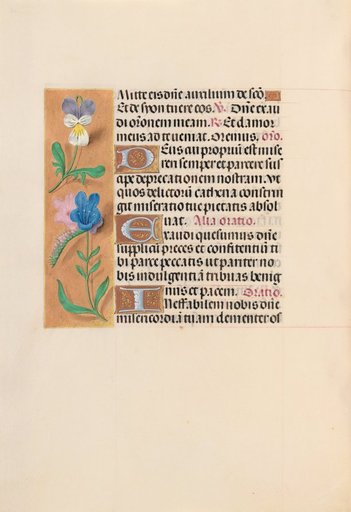 Mitte eis dñe auxilium de scõ.
Et de syon tuere eos. V. Dñe exau
di orõnem meam. R. Et clamor
meus ad te veniat. Oremus. Orõ.
Deus cui proprium est mise
reri semper et parcere sus
cipe deprecationem nostram. Vt
quos delictorũ cathena constrin
git miseratio tue pietatis absol
uat. Alia oratio.
Exaudi quesumus dñe
supplicũ preces et confitentiũ ti
bi parce peccatis ut pariter no
bis indulgentiã tribuas benig
nus et pacem. Oratio.
Ineffabilem nobis dñe
misericordiã tuam clementer os